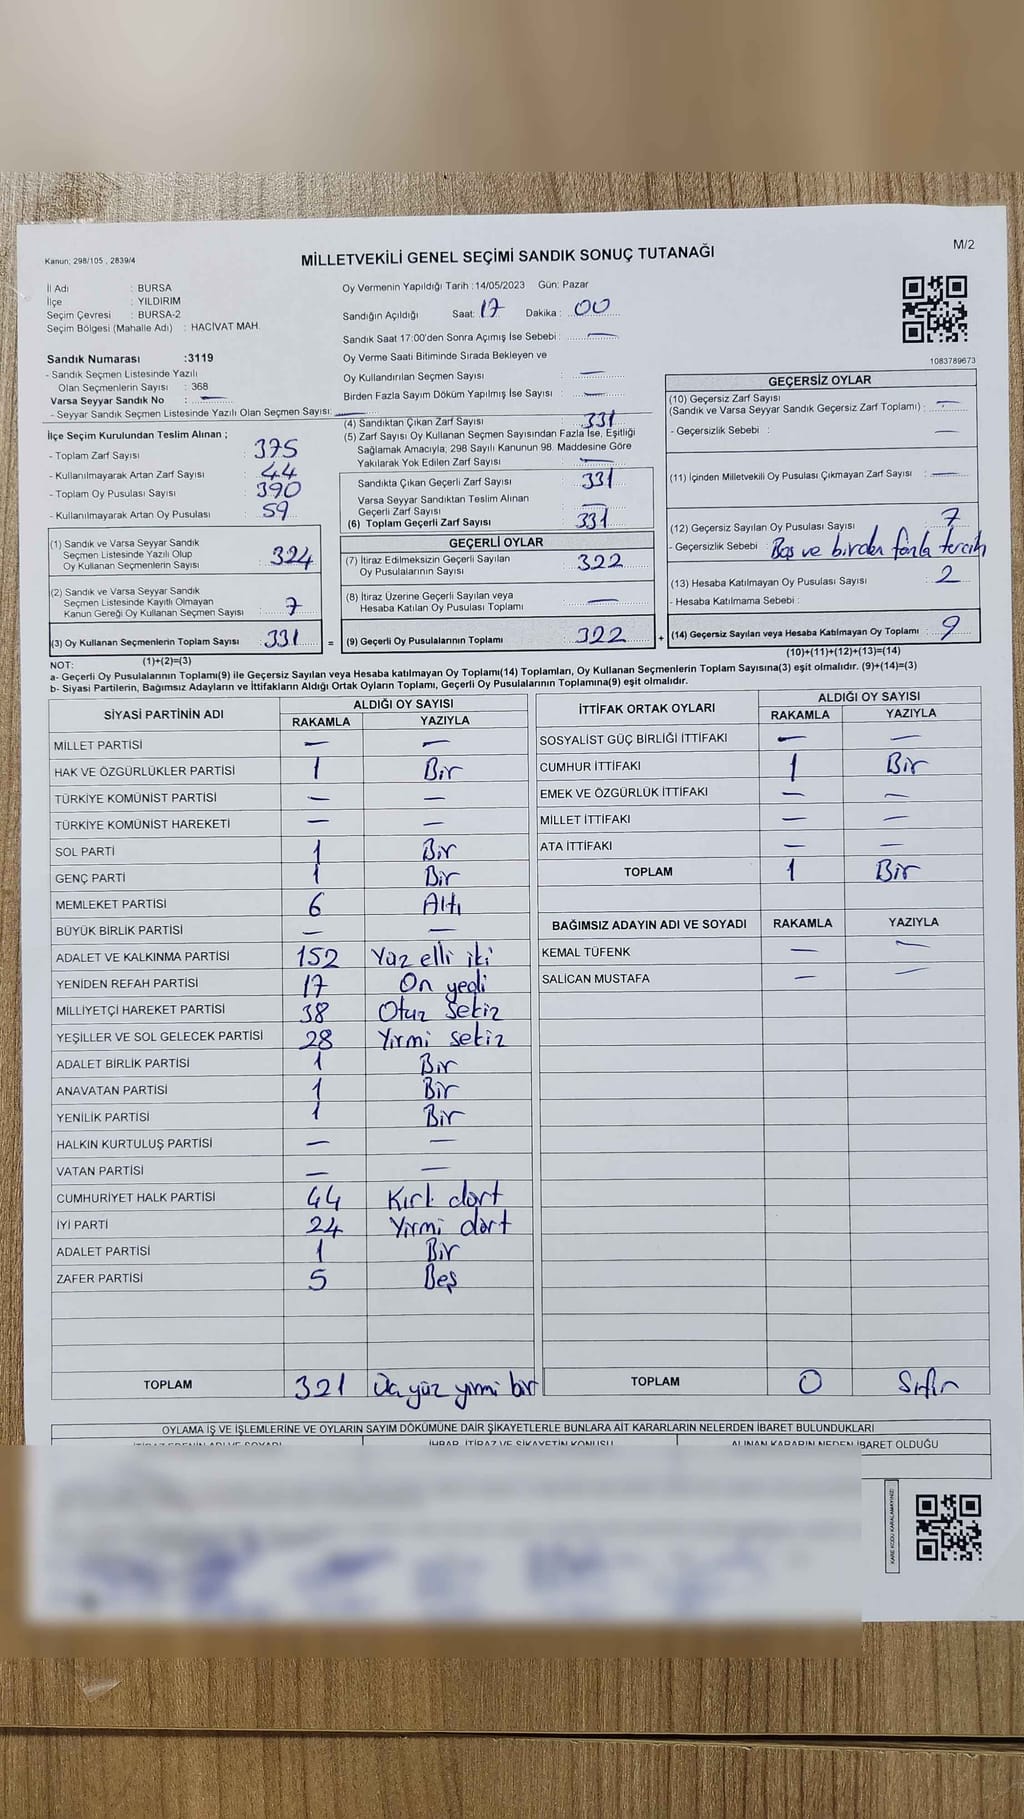 M/2
Kanun: 298/105 , 2839/4
MİLLETVEKİLİ GENEL SEÇİMİ SANDIK SONUÇ TUTANAĞI
İl Adı : BURSA
İlçe : YILDIRIM
Seçim Çevresi : BURSA-2
Seçim Bölgesi (Mahalle Adı) : HACİVAT MAH.
Sandık Numarası :3119
- Sandık Seçmen Listesinde Yazılı
Olan Seçmenlerin Sayısı : 368
Varsa Seyyar Sandık No : —
- Seyyar Sandık Seçmen Listesinde Yazılı Olan Seçmen Sayısı: —
İlçe Seçim Kurulundan Teslim Alınan ;
- Toplam Zarf Sayısı : 375
- Kullanılmayarak Artan Zarf Sayısı : 44
- Toplam Oy Pusulası Sayısı : 390
- Kullanılmayarak Artan Oy Pusulası : 59
(1) Sandık ve Varsa Seyyar Sandık
Seçmen Listesinde Yazılı Olup
Oy Kullanan Seçmenlerin Sayısı : 324
(2) Sandık ve Varsa Seyyar Sandık
Seçmen Listesinde Kayıtlı Olmayan
Kanun Gereği Oy Kullanan Seçmen Sayısı : 7
(3) Oy Kullanan Seçmenlerin Toplam Sayısı : 331 =
(1)+(2)=(3)
Oy Vermenin Yapıldığı Tarih : 14/05/2023 Gün: Pazar
Sandığın Açıldığı Saat: 17 Dakika : 00
Sandık Saat 17:00'den Sonra Açımış İse Sebebi : —
Oy Verme Saati Bitiminde Sırada Bekleyen ve
Oy Kullandırılan Seçmen Sayısı : —
Birden Fazla Sayım Döküm Yapılmış İse Sayısı : —
(4) Sandıktan Çıkan Zarf Sayısı : 331
(5) Zarf Sayısı Oy Kullanan Seçmen Sayısından Fazla İse, Eşitliği
Sağlamak Amacıyla; 298 Sayılı Kanunun 98. Maddesine Göre
Yakılarak Yok Edilen Zarf Sayısı : —
Sandıkta Çıkan Geçerli Zarf Sayısı : 331
Varsa Seyyar Sandıktan Teslim Alınan
Geçerli Zarf Sayısı : —
(6) Toplam Geçerli Zarf Sayısı : 331
GEÇERLİ OYLAR
(7) İtiraz Edilmeksizin Geçerli Sayılan
Oy Pusulalarının Sayısı : 322
(8) İtiraz Üzerine Geçerli Sayılan veya
Hesaba Katılan Oy Pusulası Toplamı : —
(9) Geçerli Oy Pusulalarının Toplamı : 322 +
1083789673
GEÇERSİZ OYLAR
(10) Geçersiz Zarf Sayısı
(Sandık ve Varsa Seyyar Sandık Geçersiz Zarf Toplamı) : —
- Geçersizlik Sebebi : —
(11) İçinden Milletvekili Oy Pusulası Çıkmayan Zarf Sayısı : —
(12) Geçersiz Sayılan Oy Pusulası Sayısı : 7
- Geçersizlik Sebebi : Boş ve birden fazla tercih
(13) Hesaba Katılmayan Oy Pusulası Sayısı : 2
- Hesaba Katılmama Sebebi :
(14) Geçersiz Sayılan veya Hesaba Katılmayan Oy Toplamı : 9
(10)+(11)+(12)+(13)=(14)
NOT:
a- Geçerli Oy Pusulalarının Toplamı(9) ile Geçersiz Sayılan veya Hesaba katılmayan Oy Toplamı(14) Toplamları, Oy Kullanan Seçmenlerin Toplam Sayısına(3) eşit olmalıdır. (9)+(14)=(3)
b- Siyasi Partilerin, Bağımsız Adayların ve İttifakların Aldığı Ortak Oyların Toplamı, Geçerli Oy Pusulalarının Toplamına(9) eşit olmalıdır.
SİYASİ PARTİNİN ADI ALDIĞI OY SAYISI
RAKAMLA YAZIYLA
MİLLET PARTİSİ — —
HAK VE ÖZGÜRLÜKLER PARTİSİ 1 Bir
TÜRKİYE KOMÜNİST PARTİSİ — —
TÜRKİYE KOMÜNİST HAREKETİ — —
SOL PARTİ 1 Bir
GENÇ PARTİ 1 Bir
MEMLEKET PARTİSİ 6 Altı
BÜYÜK BİRLİK PARTİSİ — —
ADALET VE KALKINMA PARTİSİ 152 Yüz elli iki
YENİDEN REFAH PARTİSİ 17 On yedi
MİLLİYETÇİ HAREKET PARTİSİ 38 Otuz sekiz
YEŞİLLER VE SOL GELECEK PARTİSİ 28 Yirmi sekiz
ADALET BİRLİK PARTİSİ 1 Bir
ANAVATAN PARTİSİ 1 Bir
YENİLİK PARTİSİ 1 Bir
HALKIN KURTULUŞ PARTİSİ — —
VATAN PARTİSİ — —
CUMHURİYET HALK PARTİSİ 44 Kırk dört
İYİ PARTİ 24 Yirmi dört
ADALET PARTİSİ 1 Bir
ZAFER PARTİSİ 5 Beş
TOPLAM 321 Üç yüz yirmi bir
İTTİFAK ORTAK OYLARI ALDIĞI OY SAYISI
RAKAMLA YAZIYLA
SOSYALİST GÜÇ BİRLİĞİ İTTİFAKI — —
CUMHUR İTTİFAKI 1 Bir
EMEK VE ÖZGÜRLÜK İTTİFAKI — —
MİLLET İTTİFAKI — —
ATA İTTİFAKI — —
TOPLAM 1 Bir
BAĞIMSIZ ADAYIN ADI VE SOYADI RAKAMLA YAZIYLA
KEMAL TÜFENK — —
SALİCAN MUSTAFA — —
TOPLAM 0 Sıfır
OYLAMA İŞ VE İŞLEMLERİNE VE OYLARIN SAYIM DÖKÜMÜNE DAİR ŞİKAYETLERLE BUNLARA AİT KARARLARIN NELERDEN İBARET BULUNDUKLARI
İTİRAZ EDENİN ADI VE SOYADI İHBAR, İTİRAZ VE ŞİKAYETİN KONUSU ALINAN KARARIN NEDEN İBARET OLDUĞU
KARE KODU KARALAMAYINIZ!